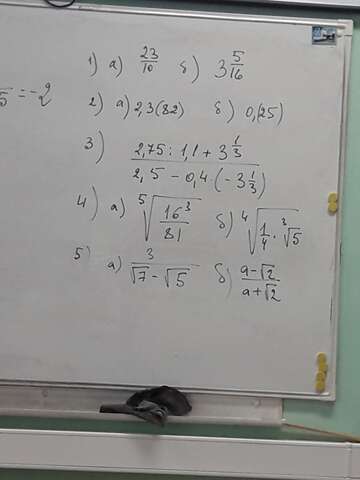 5 = -2
1) а) 23/10 б) 3 5/16
2) а) 2,3(82) б) 0,(25)
3) (2,75 : 1,1 + 3 1/3) / (2,5 - 0,4 · (-3 1/3))
4) а) ⁵√(16³/81) б) ⁴√(1/4 · ³√5)
5) а) 3/(√7 - √5) б) (a-√2)/(a+√2)